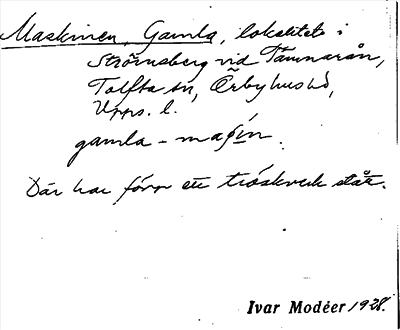 Maskinen, Gamla, lokalitet i
Strömsberg vid Tämnarån,
Tolfta sn, Örbyhus hd,
Upps. l.
gamla-maʃin.
Där har förr ett tröskverk stått.
Ivar Modéer 1928.